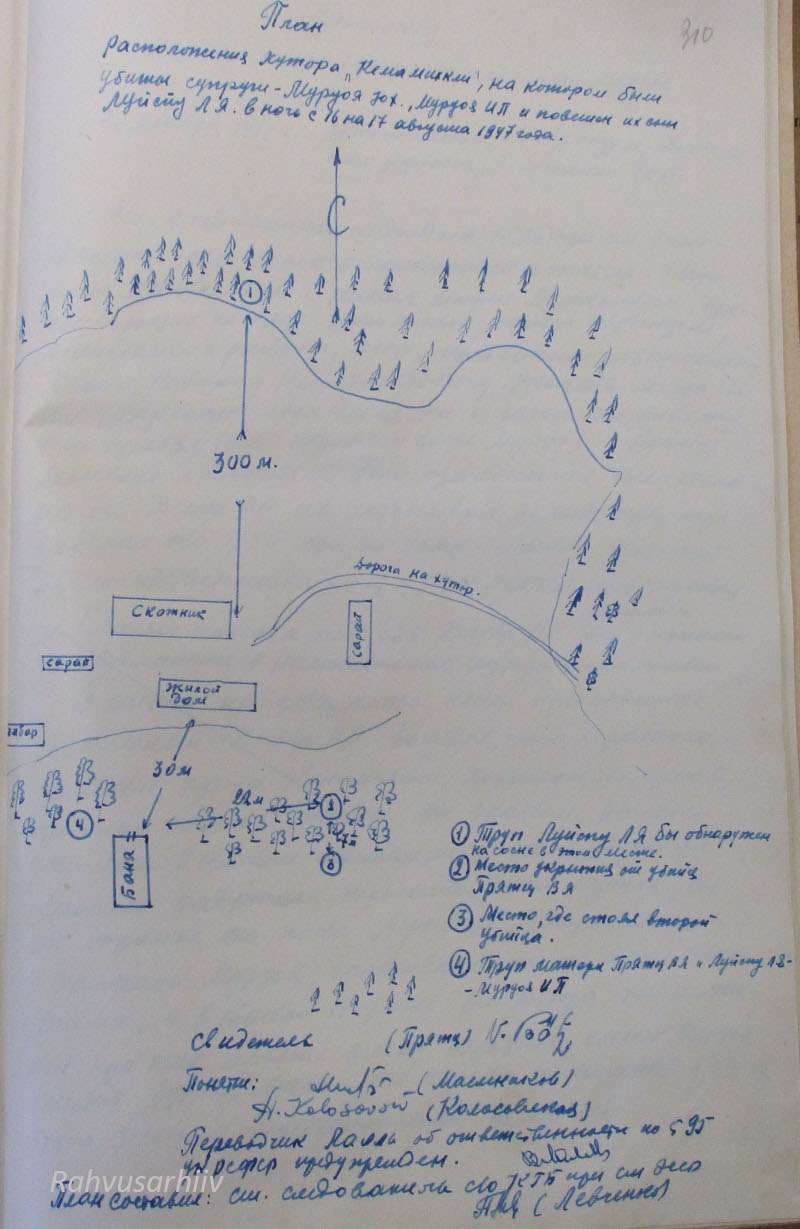 План
310
расположения хутора „Кемамикли", на котором были
убиты супруги - Муруоя Юх., Муруоя ИП и повешен их сын
Луйспу Л Я. в ночь с 16 на 17 августа 1947 года.
С
1
300 м.
Дорога на хутор.
Скотник
сарай
сарай
жилой
дом
30 м
22 м
4
Баня
1 Труп Луйспу Л Я бы обнаружен
на сосне в этом месте.
2 Место укрытия от убийц
Прятц В Я
3 Место, где стоял второй
убийца.
4 Труп матери Прятц В Я и Луйспу
- Муруоя ИП
Свидетель (Прятц)
Понятые: (Масленников)
(Колосовская)
Переводчик Лалль об ответственности по § 95
ук рсфср предупрежден.
План составил: ст. следователь КГБ при см
(Левченко)
Rahvusarhiiv